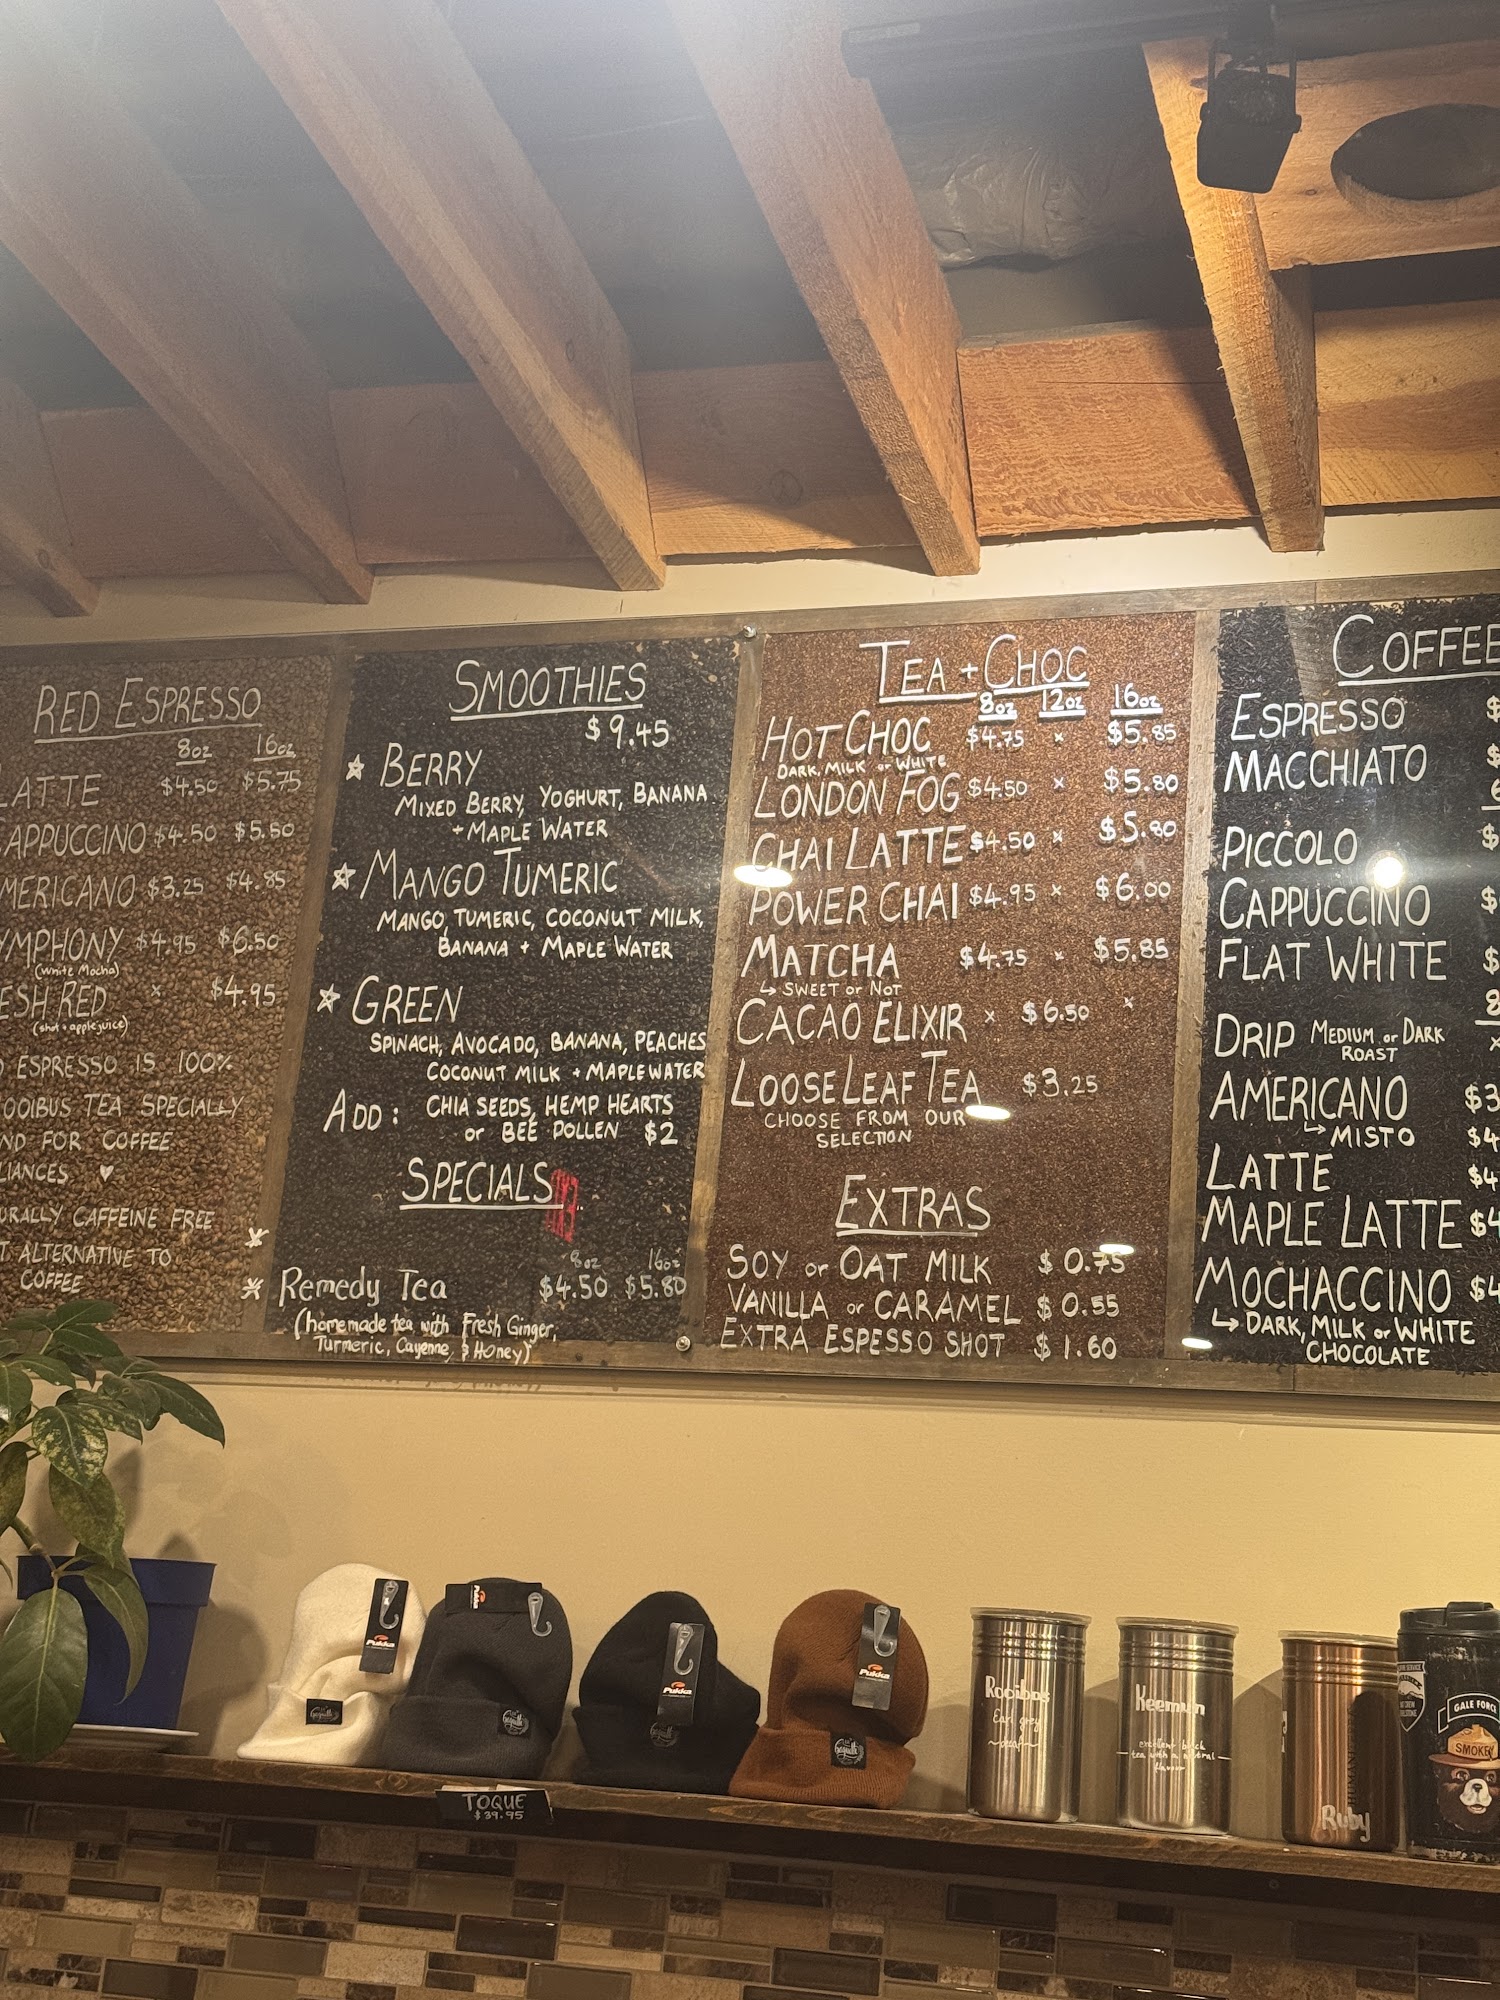 RED ESPRESSO
8oz 16oz
LATTE $4.50 $5.75
CAPPUCCINO $4.50 $5.50
MERICANO $3.25 $4.85
YMPHONY $4.95 $6.50
(White Mocha)
ESH RED × $4.95
(shot + apple juice)
ESPRESSO IS 100%
OOIBUS TEA SPECIALLY
ND FOR COFFEE
LIANCES ♥
URALLY CAFFEINE FREE
T ALTERNATIVE TO
COFFEE
SMOOTHIES
$9.45
☆ BERRY
MIXED BERRY, YOGHURT, BANANA
+ MAPLE WATER
☆ MANGO TUMERIC
MANGO, TUMERIC, COCONUT MILK,
BANANA + MAPLE WATER
☆ GREEN
SPINACH, AVOCADO, BANANA, PEACHES
COCONUT MILK + MAPLE WATER
ADD: CHIA SEEDS, HEMP HEARTS
or BEE POLLEN $2
SPECIALS
8oz 16oz
Remedy Tea $4.50 $5.80
(homemade tea with Fresh Ginger,
Turmeric, Cayenne, & Honey)
TEA + CHOC
8oz 12oz 16oz
HOT CHOC $4.75 × $5.85
DARK, MILK or WHITE
LONDON FOG $4.50 × $5.80
CHAI LATTE $4.50 × $5.80
POWER CHAI $4.95 × $6.00
MATCHA $4.75 × $5.85
↳ SWEET or NOT
CACAO ELIXIR × $6.50 ×
LOOSE LEAF TEA $3.25
CHOOSE FROM OUR
SELECTION
EXTRAS
SOY or OAT MILK $0.75
VANILLA or CARAMEL $0.55
EXTRA ESPESSO SHOT $1.60
COFFEE
ESPRESSO $
MACCHIATO $
PICCOLO $
CAPPUCCINO $
FLAT WHITE $
DRIP MEDIUM or DARK ×
ROAST
AMERICANO $3
↳ MISTO $4
LATTE $4
MAPLE LATTE $4
MOCHACCINO $4
↳ DARK, MILK or WHITE
CHOCOLATE
Pukka
Pukka
Pukka
Pukka
TOQUE
$39.95
Rooibos
Earl grey
Keemun
excellent black
tea with a natural
flavour
Ruby
GALE FORCE
SMOKEY